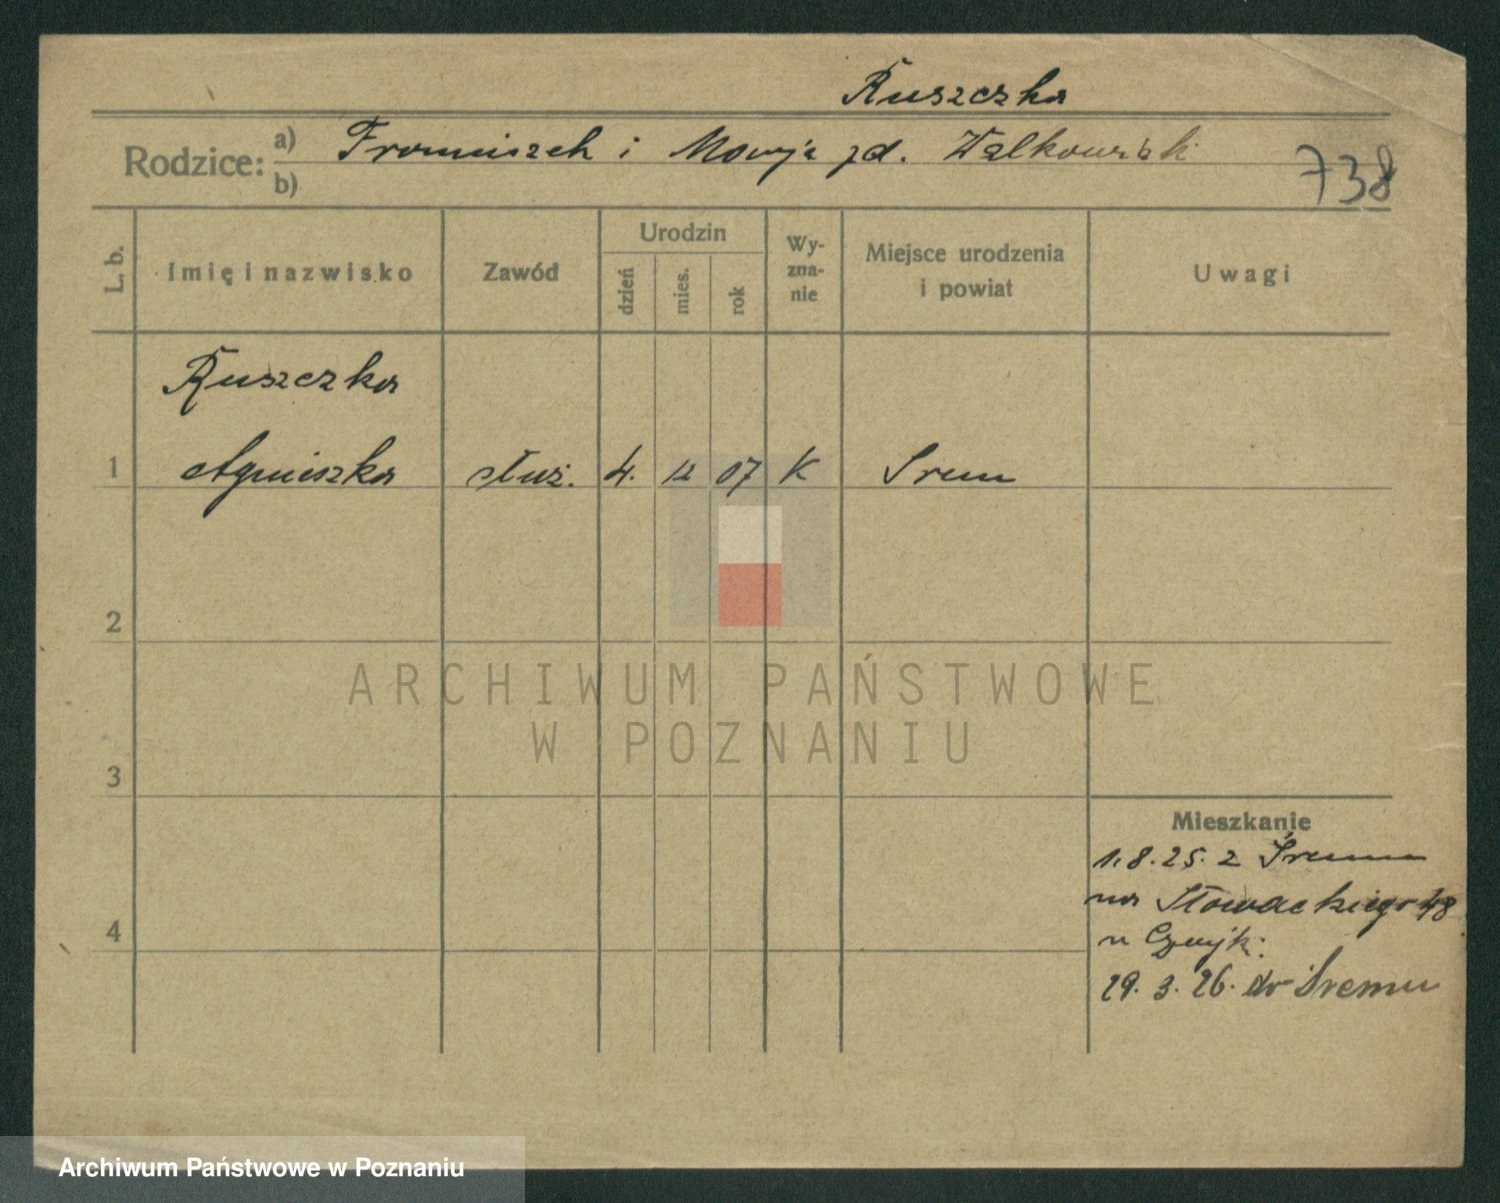 Ruszczka
Rodzice: a) Franciszek i Maryja zd. Walkowiak
b)
738
L. b.
Imię i nazwisko
Zawód
Urodzin
dzień
mies.
rok
Wy-
zna-
nie
Miejsce urodzenia
i powiat
Uwagi
Ruszczka
1 Agnieszka służ. 4. 12 07 K Śrem
2
3
4
Mieszkanie
1.8.25. z Śremu
na Słowackiego 48
u
29. 3. 26. do Śremu
ARCHIWUM PAŃSTWOWE
W POZNANIU
Archiwum Państwowe w Poznaniu